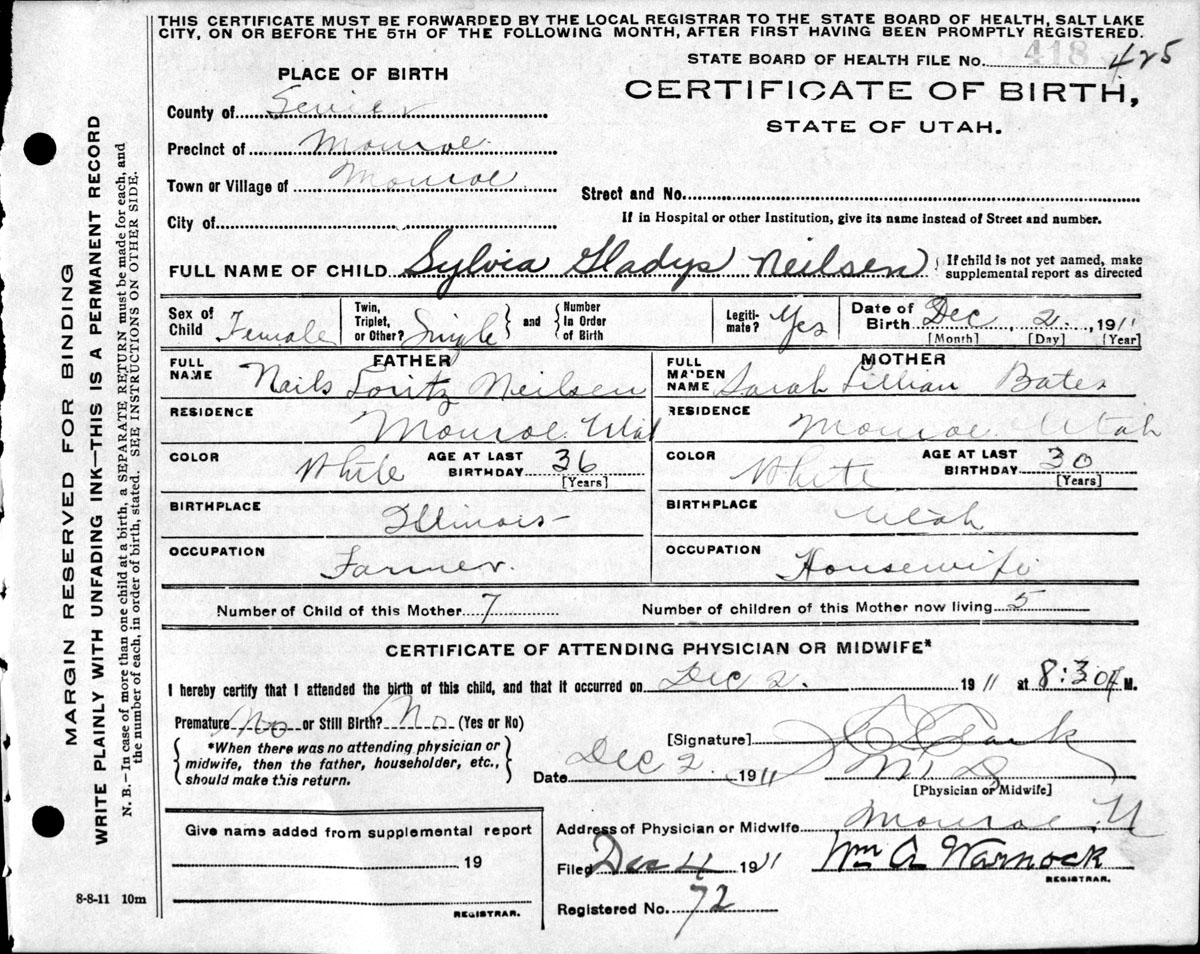 THIS CERTIFICATE MUST BE FORWARDED BY THE LOCAL REGISTRAR TO THE STATE BOARD OF HEALTH, SALT LAKE
CITY, ON OR BEFORE THE 5TH OF THE FOLLOWING MONTH, AFTER FIRST HAVING BEEN PROMPTLY REGISTERED.
STATE BOARD OF HEALTH FILE No. 418 425
PLACE OF BIRTH
CERTIFICATE OF BIRTH,
STATE OF UTAH.
County of Sevier
Precinct of Monroe
Town or Village of Monroe
Street and No.
City of
If in Hospital or other Institution, give its name instead of Street and number.
FULL NAME OF CHILD Sylvia Gladys Neilsen { If child is not yet named, make
supplemental report as directed
Sex of Child Female
Twin, Triplet, or Other? Single } and { Number in Order of Birth
Legiti-mate? Yes
Date of Birth Dec 2 1911
[Month] [Day] [Year]
FATHER
FULL NAME Nails Loritz Neilsen
RESIDENCE Monroe Utah
COLOR White AGE AT LAST BIRTHDAY 36 [Years]
BIRTHPLACE Illinois
OCCUPATION Farmer.
MOTHER
FULL MAIDEN NAME Sarah Lillian Bates
RESIDENCE Monroe Utah
COLOR White AGE AT LAST BIRTHDAY 30 [Years]
BIRTHPLACE Utah
OCCUPATION Housewife
Number of Child of this Mother 7 Number of children of this Mother now living 5
CERTIFICATE OF ATTENDING PHYSICIAN OR MIDWIFE*
I hereby certify that I attended the birth of this child, and that it occurred on Dec 2. 1911 at 8:30 M.
Premature No or Still Birth? No (Yes or No)
*When there was no attending physician or
midwife, then the father, householder, etc.,
should make this return.
[Signature] Clark
Date Dec 2. 1911 M D
[Physician or Midwife]
Give name added from supplemental report
19
REGISTRAR.
Address of Physician or Midwife Monroe U
Filed Dec 4 1911 Wm A Warnock
REGISTRAR.
Registered No. 72
8-8-11 10m
MARGIN RESERVED FOR BINDING
WRITE PLAINLY WITH UNFADING INK—THIS IS A PERMANENT RECORD
N. B.—In case of more than one child at a birth, a SEPARATE RETURN must be made for each, and
the number of each, in order of birth, stated. SEE INSTRUCTIONS ON OTHER SIDE.